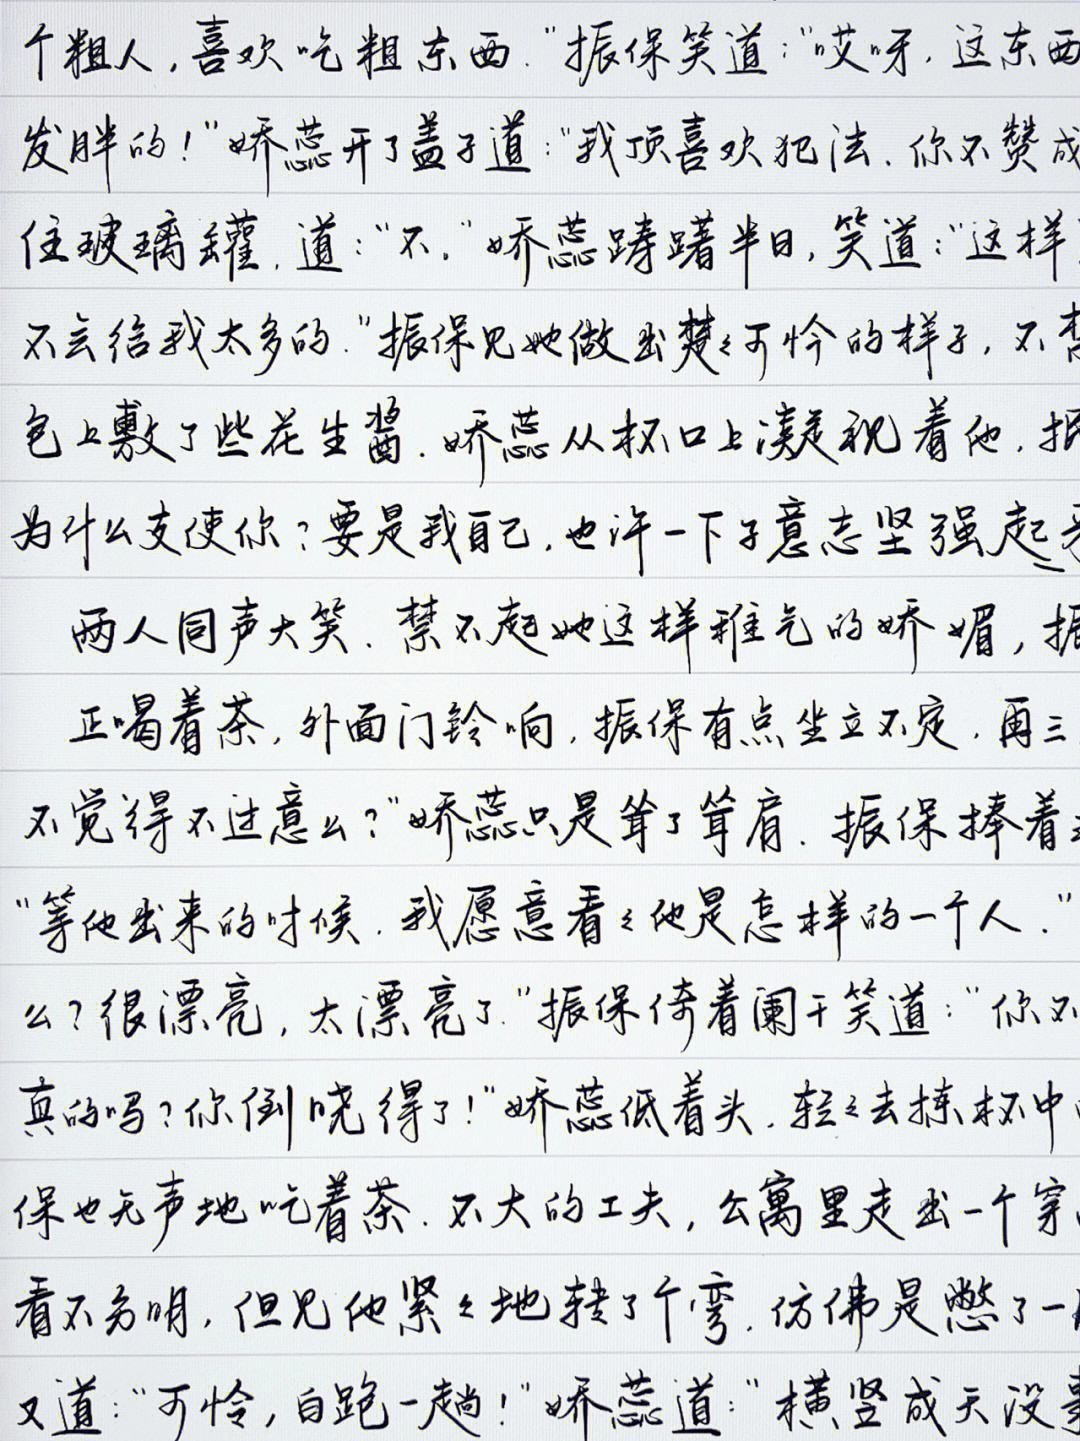 个粗人，喜欢吃粗东西."振保笑道："哎呀，这东西
发胖的！"娇蕊开了盖子道："我顶喜欢犯法.你不赞成
住玻璃罐，道："不。"娇蕊踌躇半日，笑道："这样
不会给我太多的."振保见她做出楚々可怜的样子，不禁
包上敷了些花生酱.娇蕊从杯口上凝视着他，振
为什么支使你？要是我自己，也许一下子意志坚强起来
两人同声大笑.禁不起她这样稚气的娇媚，振
正喝着茶，外面门铃响，振保有点坐立不定.再三
不觉得不过意么？"娇蕊只是耸了耸肩.振保捧着
"等他出来的时候.我愿意看々他是怎样的一个人."
么？很漂亮，太漂亮了."振保倚着阑干笑道："你不
真的吗？你倒晓得了！"娇蕊低着头.轻々去拣杯中
保也无声地吃着茶.不大的工夫，公寓里走出一个穿
看不分明，但见他紧々地转了个弯.仿佛是憋了一
又道："可怜，白跑一趟！"娇蕊道："横竖成天没事